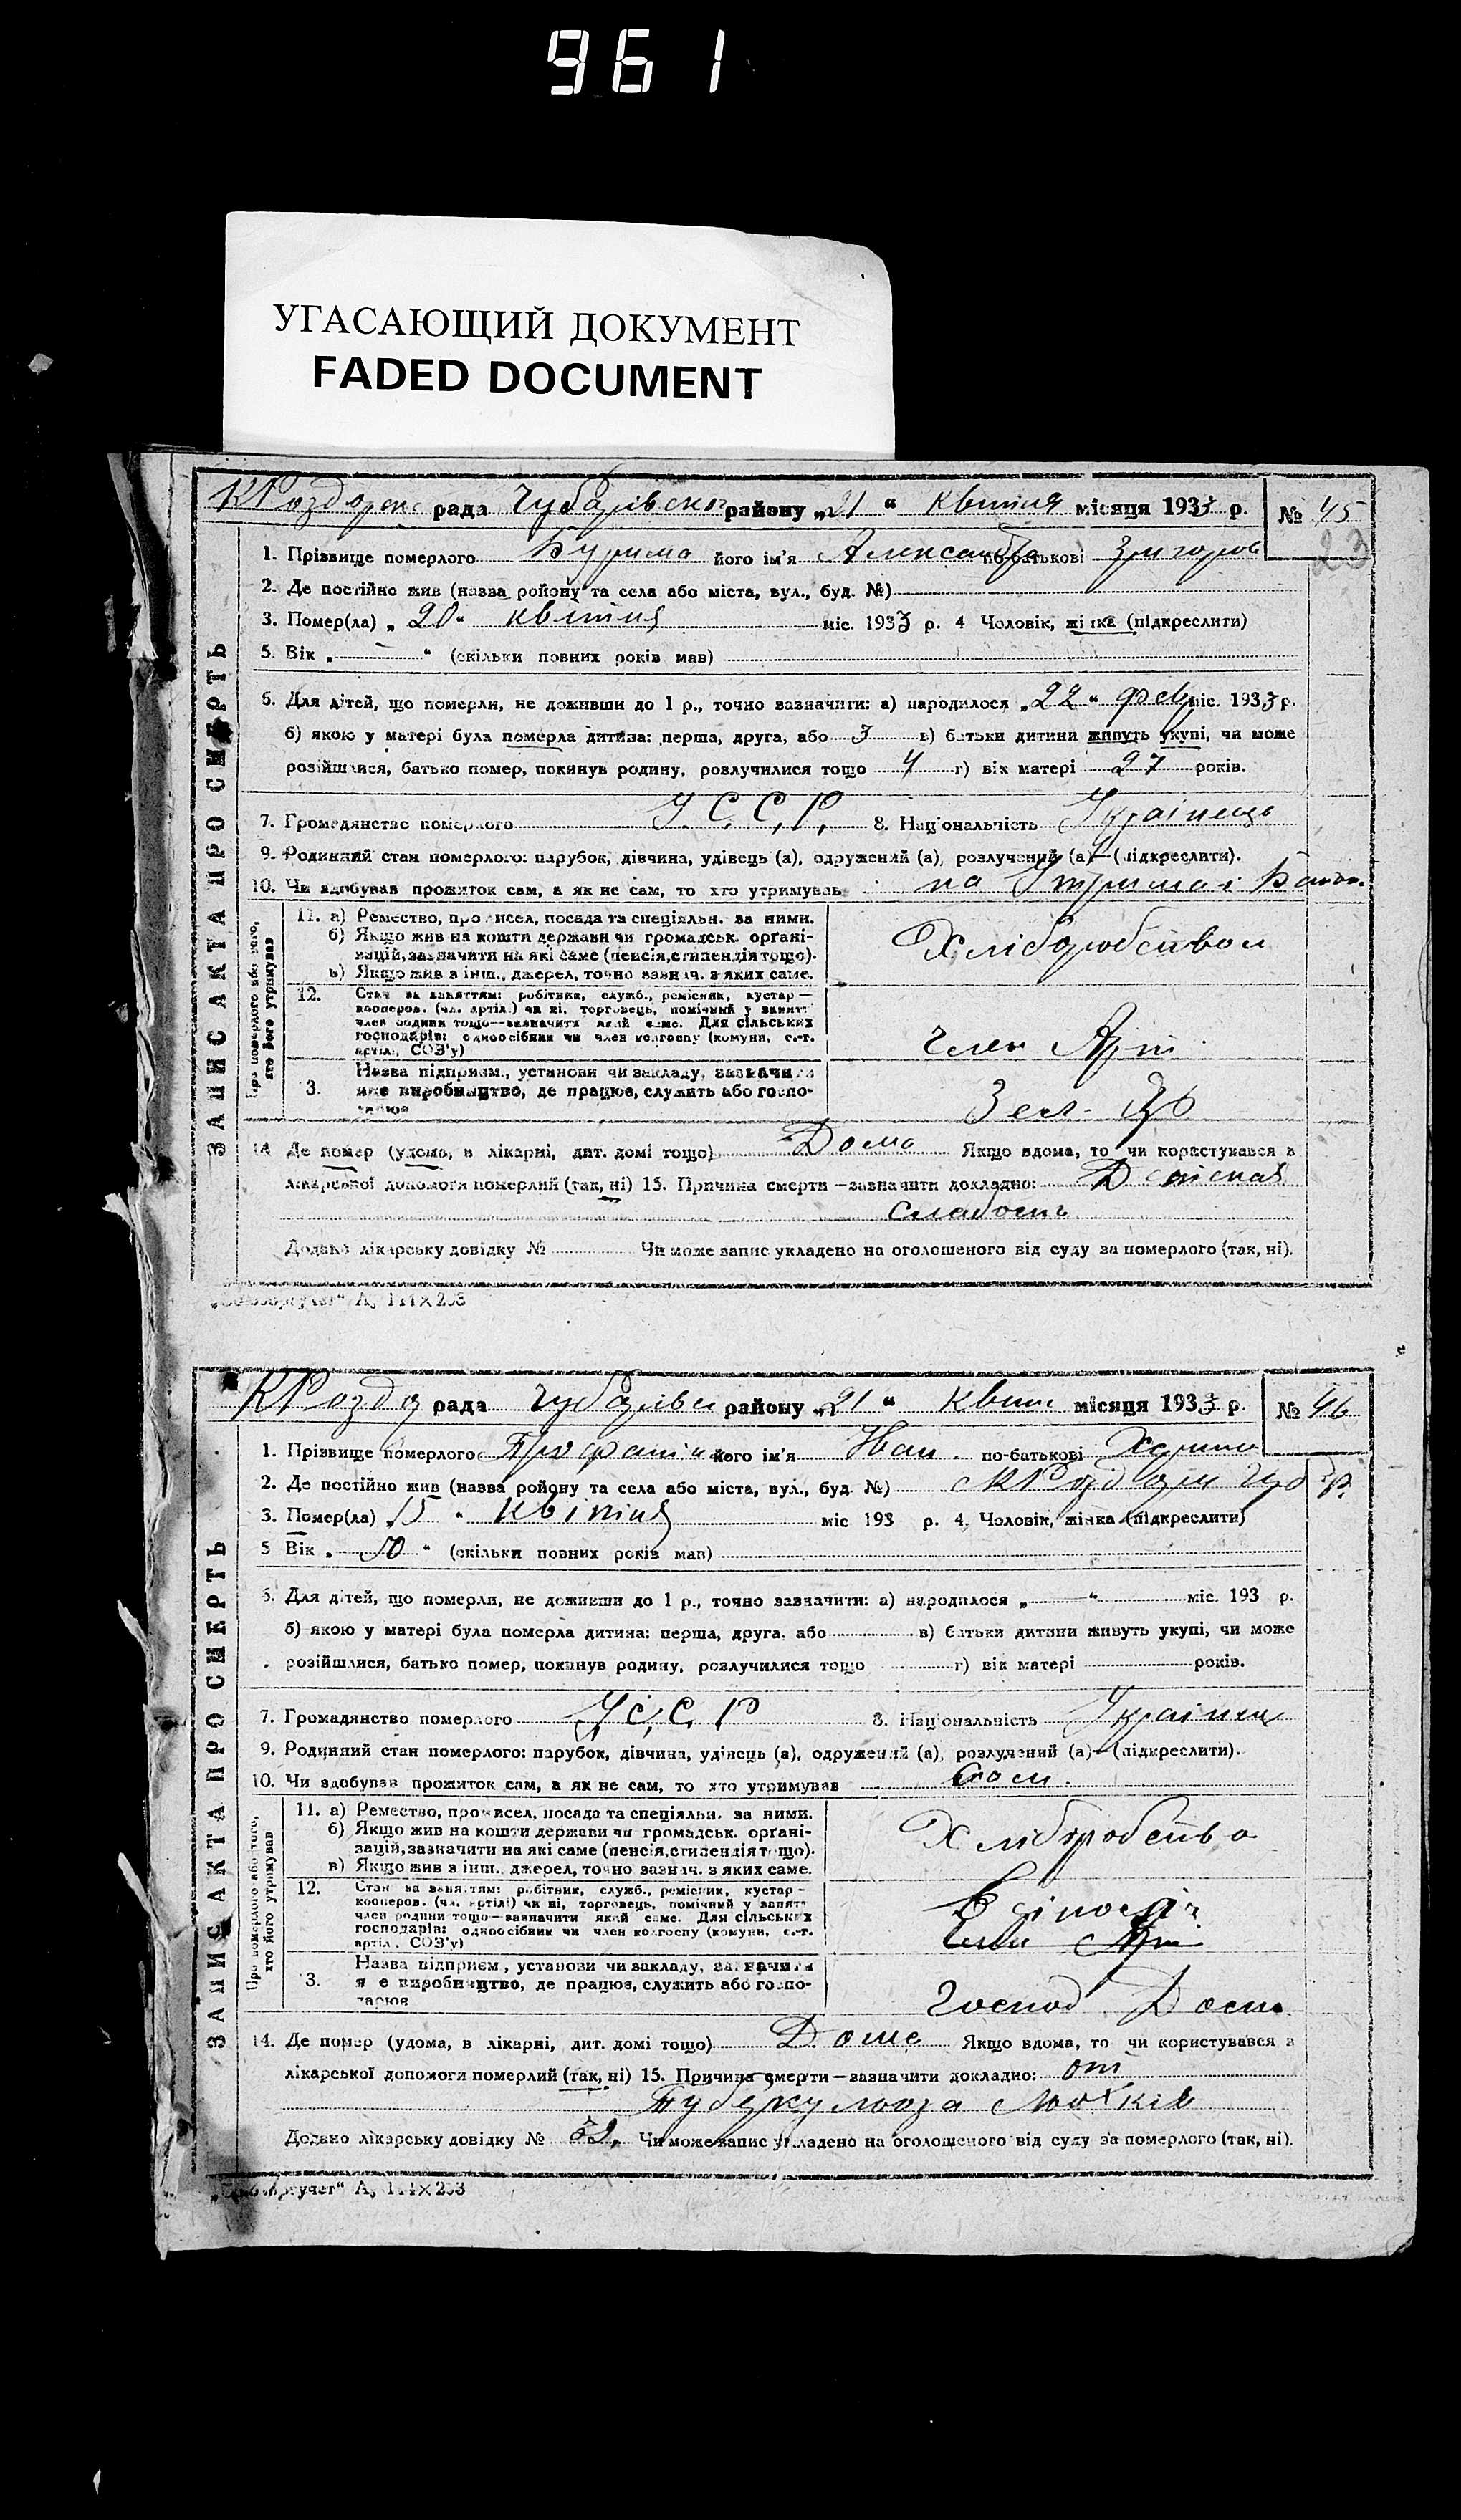 961
УГАСАЮЩИЙ ДОКУМЕНТ
FADED DOCUMENT
рада Чубарівског району „21 “ квітня місяця 1933 р. № 45
23
1. Прізвище померлого його ім'я Александра по-батькові Григоров
2. Де постійно жив (назва ройону та села або міста, вул., буд. №)
3. Помер(ла) „ 20 “ квітня міс. 1933 р. 4 Чоловік, жінка (підкреслити)
5. Вік „ “ (скільки повних років мав)
6. Для дітей, що померли, не доживши до 1 р., точно зазначити: а) народилося „22 “ фев міс. 1933 р.
б) якою у матері була померла дитина: перша, друга, або 3 в) батьки дитини живуть укупі, чи може
розійшлися, батько помер, покинув родину, розлучилися тощо 4 г) вік матері 27 років.
7. Громадянство померлого У.С.С.Р. 8. Національність Українець
9. Родинний стан померлого: парубок, дівчина, удівець (а), одружений (а), розлучений (а)—(підкреслити).
10. Чи здобував прожиток сам, а як не сам, то хто утримував на Утримані Батьк.
ЗАПИС АКТА ПРО СМЕРТЬ
Про померлого або того,
хто його утримував
11. а) Ремество, промисел, посада та спеціяльн. за ними.
б) Якщо жив на кошти держави чи громадськ. органі-
зацій, зазначити на які саме (пенсія, стипендія тощо).
в) Якщо жив з інш., джерел, точно зазнач. з яких саме.
Хліборобством
12. Стан за заняттям: робітник, служб., ремісник, кустар—
кооперов. (чл. артілі) чи ні, торговець, помічний у занятт
член родини тощо—зазначити який саме. Для сільських
господарів: одноосібник чи член колгоспу (комуни, с.-г.
артіл., СОЗ'у)
Член Арт.
3. Назва підприєм., установи чи закладу, зазначити
яке виробництво, де працює, служить або госпо-
дарює
14 Де помер (удома, в лікарні, дит. домі тощо) Дома Якщо вдома, то чи користувався з
лікарської допомоги померлий (так, ні) 15. Причина смерти—зазначити докладно: Детская
слабость
Додано лікарську довідку № Чи може запис укладено на оголошеного від суду за померлого (так, ні).
рада Чубарівсь району „21 “ квітн місяця 1933 р. № 46
1. Прізвище померлого його ім'я Иван по-батькові
2. Де постійно жив (назва ройону та села або міста, вул., буд. №)
3. Помер(ла) „15 “ квітня міс 193 р. 4. Чоловік, жінка (підкреслити)
5 Вік „ 50 “ (скільки повних років мав)
6. Для дітей, що померли, не доживши до 1 р., точно зазначити: а) народилося „ “ міс. 193 р.
б) якою у матері була померла дитина: перша, друга, або в) батьки дитини живуть укупі, чи може
розійшлися, батько помер, покинув родину, розлучилися тощо г) вік матері років.
7. Громадянство померлого У.С.С.Р 8. Національність Українец
9. Родинний стан померлого: парубок, дівчина, удівець (а), одружений (а), розлучений (а)—(підкреслити).
10. Чи здобував прожиток сам, а як не сам, то хто утримував Сам.
ЗАПИС АКТА ПРО СМЕРТЬ
Про померлого або того,
хто його утримував
11. а) Ремество, промисел, посада та спеціяльн. за ними.
б) Якщо жив на кошти держави чи громадськ. органі-
зацій, зазначити на які саме (пенсія, стипендія тощо).
в) Якщо жив з інш., джерел, точно зазнач. з яких саме.
Хліборобство
12. Стан за заняттям: робітник, служб., ремісник, кустар—
кооперов. (чл. артілі) чи ні, торговець, помічний у занятт
член родини тощо—зазначити який саме. Для сільських
господарів: одноосібник чи член колгоспу (комуни, с.-г.
артіл., СОЗ'у)
Член Арт
3. Назва підприєм., установи чи закладу, зазначити
яке виробництво, де працює, служить або госпо-
дарює
Господ
14. Де помер (удома, в лікарні, дит. домі тощо) Доме Якщо вдома, то чи користувався з
лікарської допомоги померлий (так, ні) 15. Причина смерти—зазначити докладно: от
Туберкульоза
Додано лікарську довідку № 32, Чи може запис укладено на оголошеного від суду за померлого (так, ні).